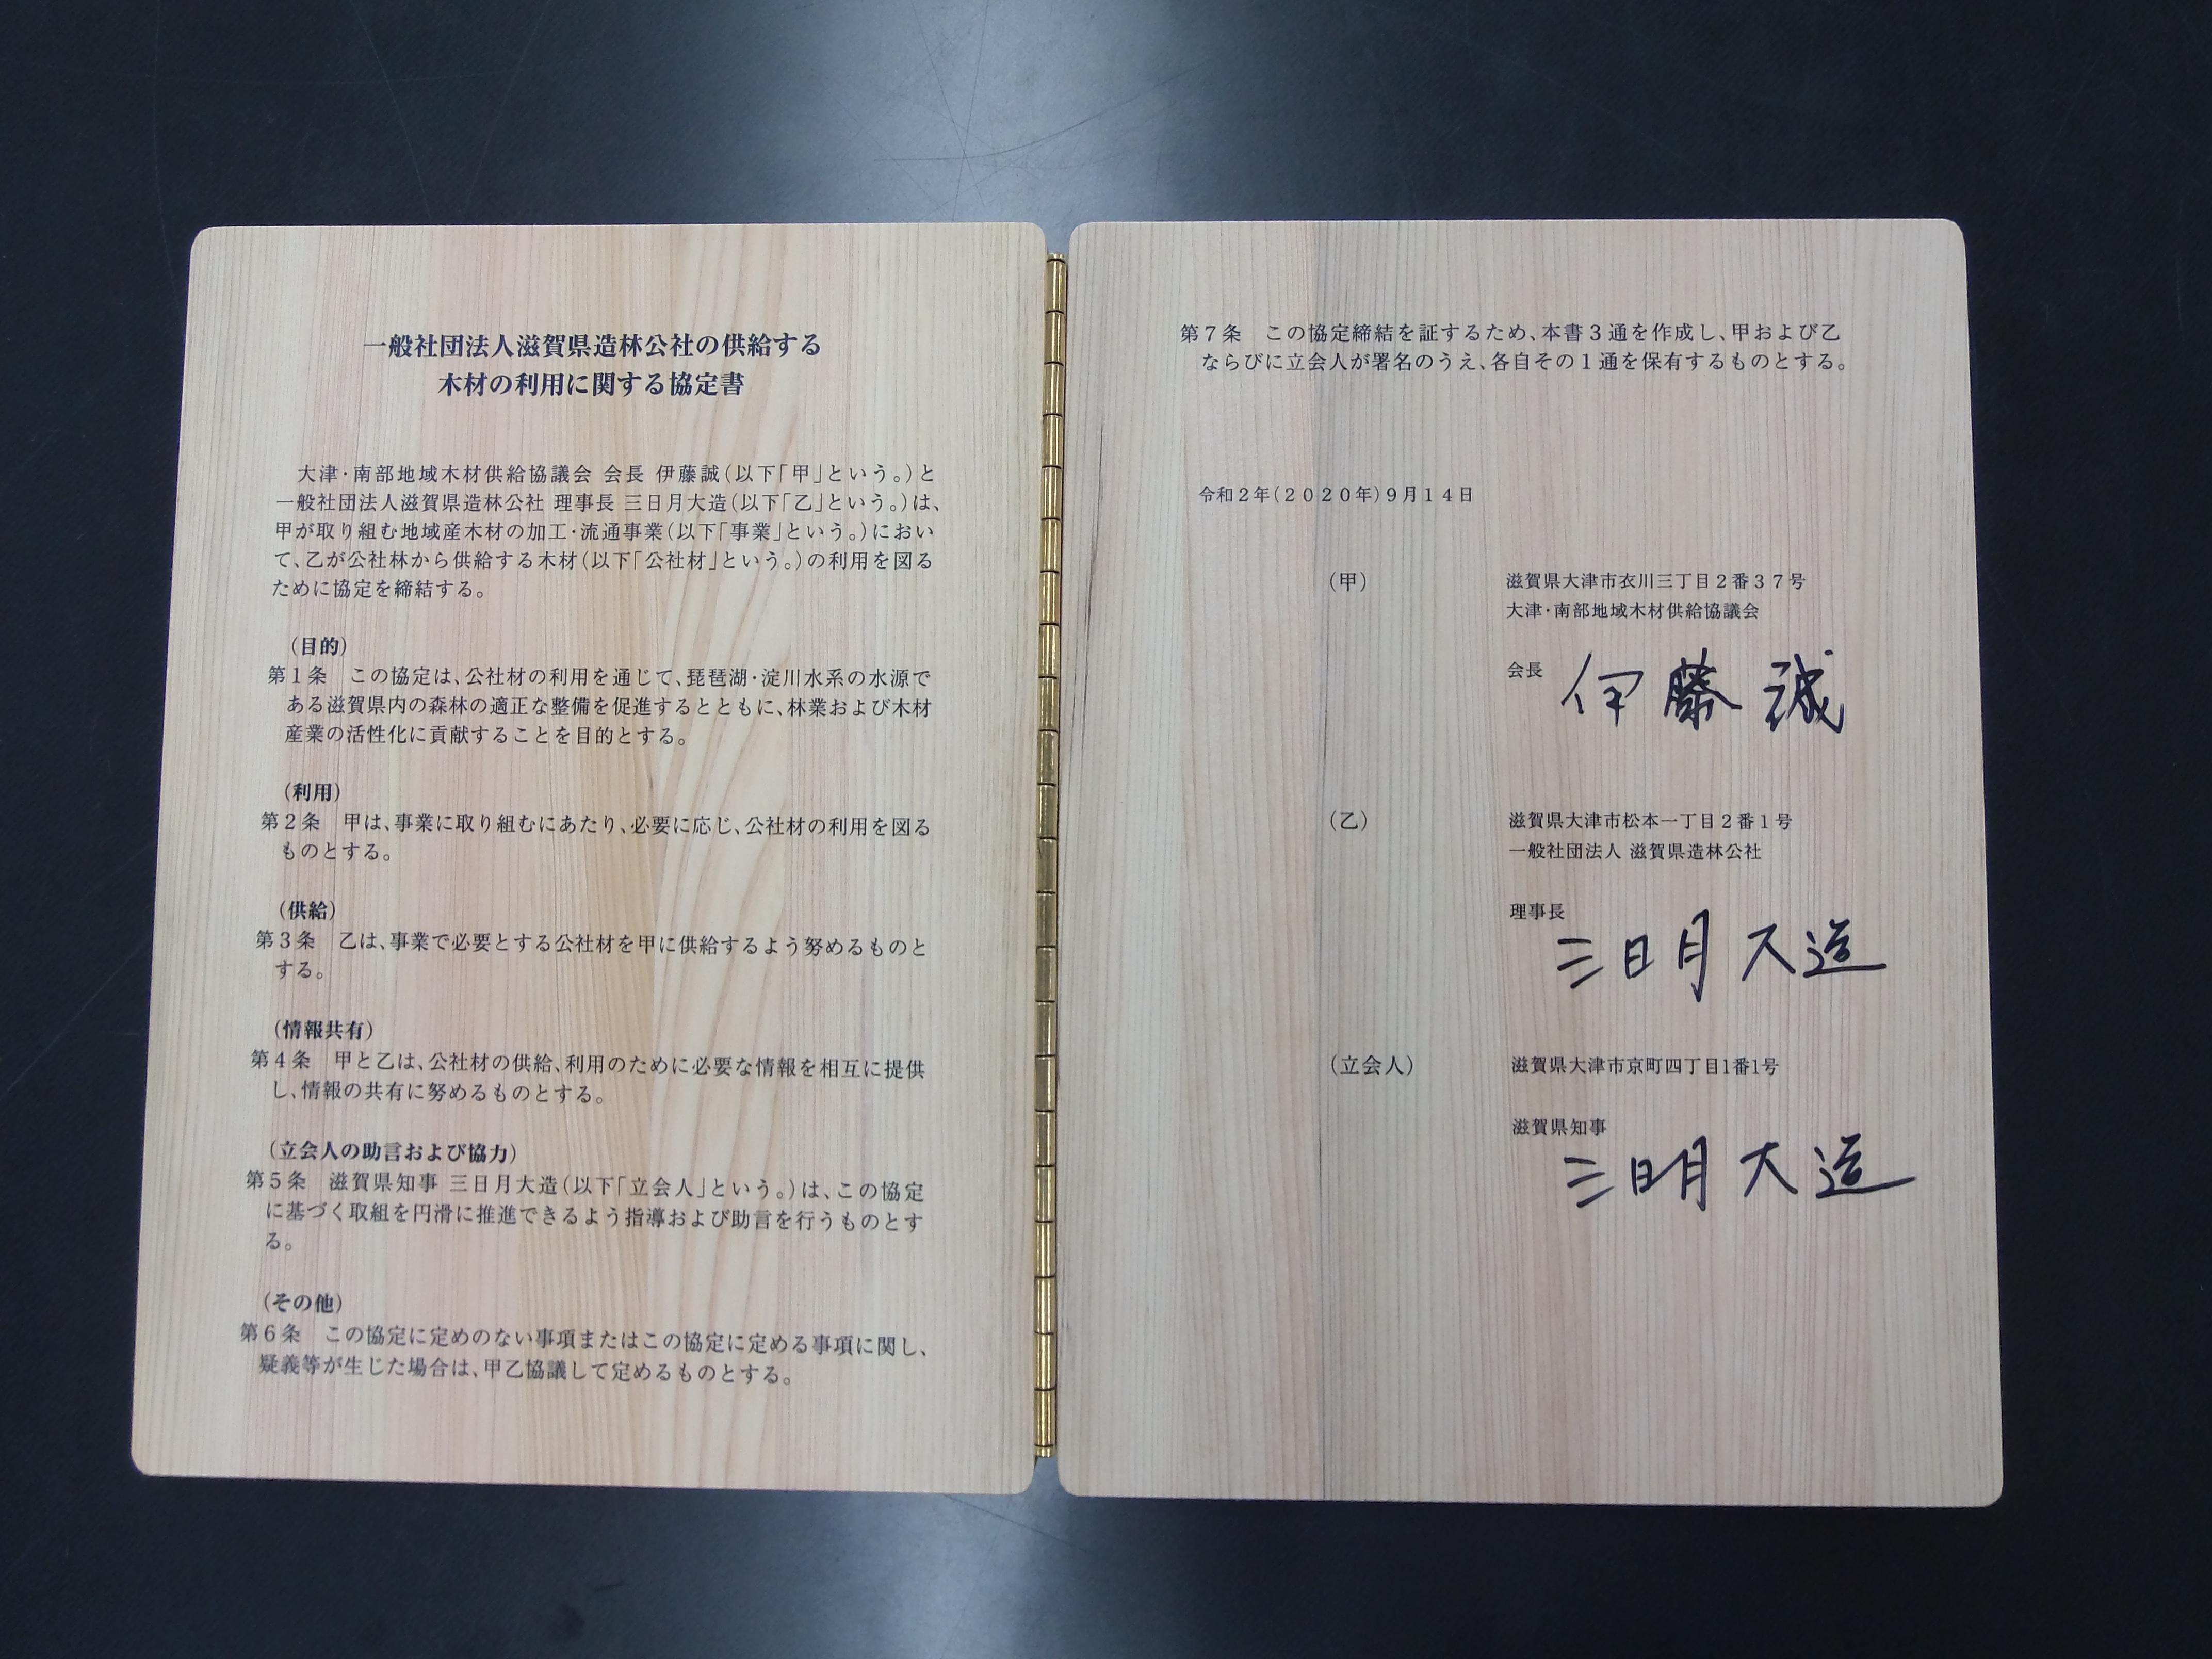 一般社団法人滋賀県造林公社の供給する
木材の利用に関する協定書
大津・南部地域木材供給協議会 会長 伊藤誠(以下「甲」という。)と
一般社団法人滋賀県造林公社 理事長 三日月大造(以下「乙」という。)は、
甲が取り組む地域産木材の加工・流通事業(以下「事業」という。)におい
て、乙が公社林から供給する木材(以下「公社材」という。)の利用を図る
ために協定を締結する。
(目的)
第1条 この協定は、公社材の利用を通じて、琵琶湖・淀川水系の水源で
ある滋賀県内の森林の適正な整備を促進するとともに、林業および木材
産業の活性化に貢献することを目的とする。
(利用)
第2条 甲は、事業に取り組むにあたり、必要に応じ、公社材の利用を図る
ものとする。
(供給)
第3条 乙は、事業で必要とする公社材を甲に供給するよう努めるものと
する。
(情報共有)
第4条 甲と乙は、公社材の供給、利用のために必要な情報を相互に提供
し、情報の共有に努めるものとする。
(立会人の助言および協力)
第5条 滋賀県知事 三日月大造(以下「立会人」という。)は、この協定
に基づく取組を円滑に推進できるよう指導および助言を行うものとす
る。
(その他)
第6条 この協定に定めのない事項またはこの協定に定める事項に関し、
疑義等が生じた場合は、甲乙協議して定めるものとする。
第7条 この協定締結を証するため、本書3通を作成し、甲および乙
ならびに立会人が署名のうえ、各自その1通を保有するものとする。
令和2年(2020年)9月14日
(甲) 滋賀県大津市衣川三丁目2番37号
大津・南部地域木材供給協議会
会長 伊藤 誠
(乙) 滋賀県大津市松本一丁目2番1号
一般社団法人 滋賀県造林公社
理事長 三日月 大造
(立会人) 滋賀県大津市京町四丁目1番1号
滋賀県知事
三日月 大造